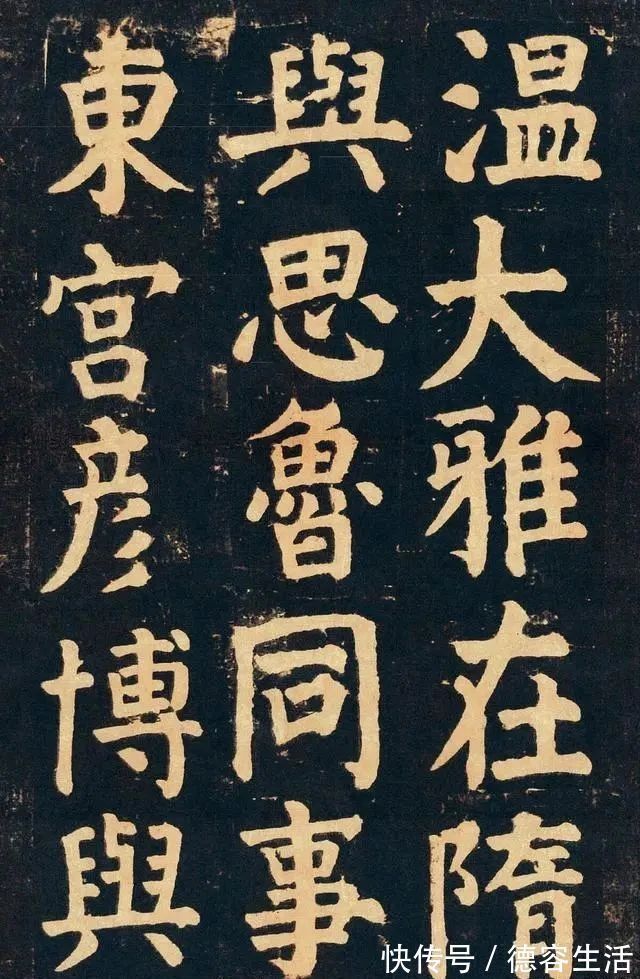 温大雅在隋
與思魯同事
東宮彦博與
快传号／德容生活